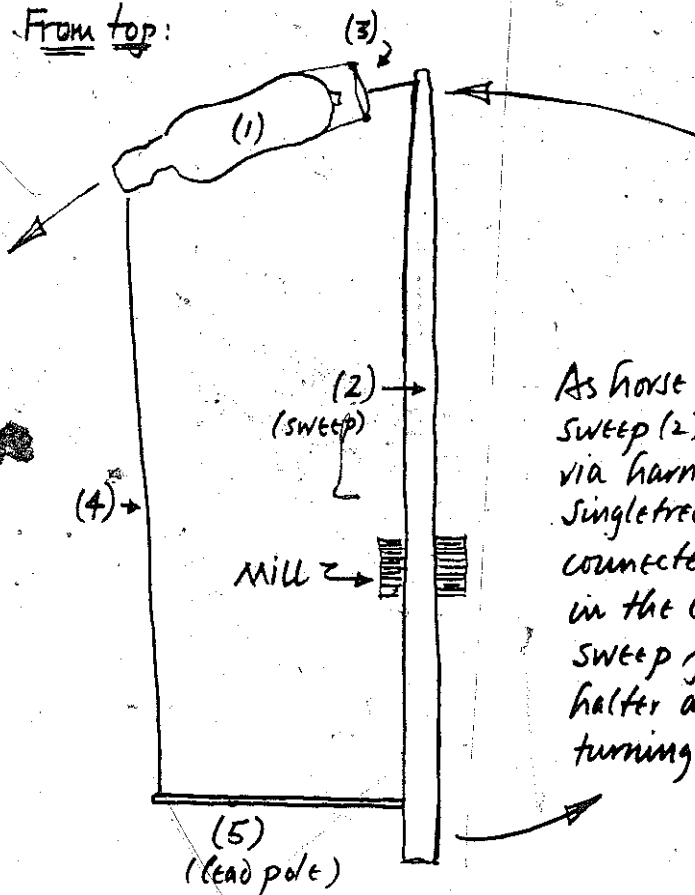 From top:
(3)
(1)
(2)
(sweep)
(4)
Mill
As horse
sweep (2)
via harn
singletree
connecte
in the
sweep
halter a
turning
(5)
(lead pole)